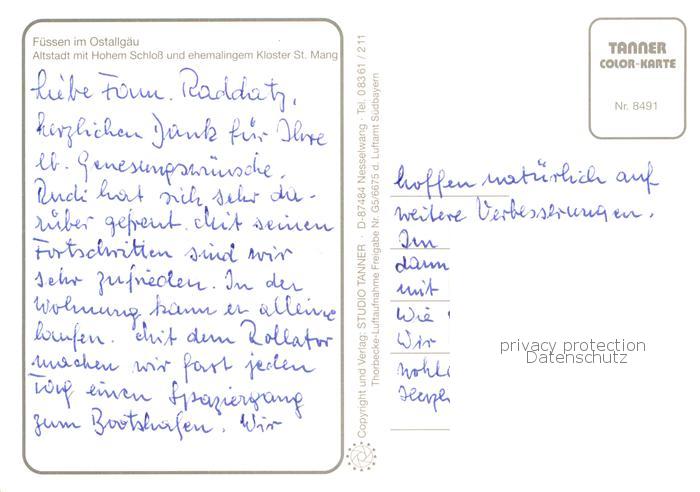 Füssen im Ostallgäu
Altstadt mit Hohem Schloß und ehemalingem Kloster St. Mang
liebe Fam. Raddatz,
herzlichen Dank für Ihre
lb. Genesungswünsche.
Rudi hat sich sehr da-
rüber gefreut. Mit seinen
Fortschritten sind wir
sehr zufrieden. In der
Wohnung kann er alleine
laufen. Mit dem Rollator
machen wir fast jeden
Tag einen Spaziergang
zum Bootshafen. Wir
Copyright und Verlag: STUDIO TANNER · D-87484 Nesselwang · Tel. 0 83 61 / 2 11
Thorbecke-Luftaufnahme Freigabe Nr. G5/6675 d. Luftamt Südbayern
TANNER
COLOR-KARTE
Nr. 8491
hoffen natürlich auf
weitere Verbesserungen.
Im
dann
mit
Wie
Wir
privacy protection
Datenschutz